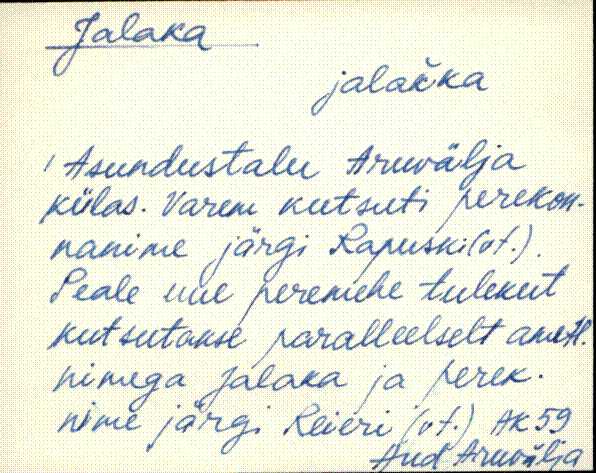 Jalaka
jalaǩka
Asundustalu Aruvälja
külas. Varem kutsuti perekon-
nanime järgi Rapuski (vt.).
Peale uue peremehe tulekut
kutsutakse paralleelselt ametl.
nimega Jalaka ja perek.
nime järgi Reieri (vt.) AK 59
Aud Aruvälja